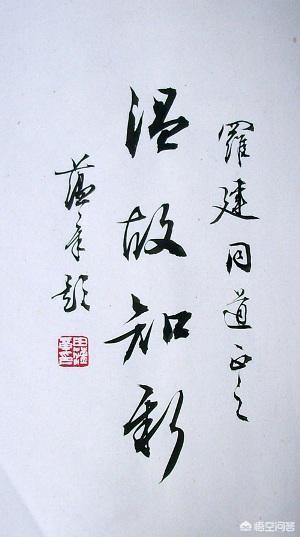 羅建同道正之
温故知新
題
悟空问答